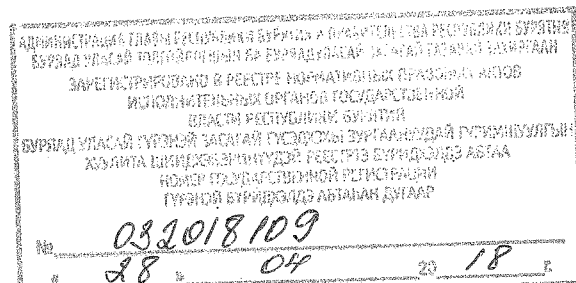 АДМИНИСТРАЦИЯ ГЛАВЫ РЕСПУБЛИКИ БУРЯТИЯ И ПРАВИТЕЛЬСТВА РЕСПУБЛИКИ БУРЯТИЯ
БУРЯАД УЛАСАЙ БА БУРЯАД УЛАСАЙ ЗАСАГАЙ ГАЗАРАЙ ЗАХИРГААН
ЗАРЕГИСТРИРОВАНО В РЕЕСТРЕ НОРМАТИВНЫХ ПРАВОВЫХ АКТОВ
ИСПОЛНИТЕЛЬНЫХ ОРГАНОВ ГОСУДАРСТВЕННОЙ
ВЛАСТИ РЕСПУБЛИКИ БУРЯТИЯ
БУРЯАД УЛАСАЙ ГҮРЭНЭЙ ЗАСАГАЙ ГҮЙСЭДХЭХЫ ЗУРГААНУУДАЙ
РЕЕСТРТЭ БҮРИДХЭЛДЭ АБТАА
НОМЕР ГОСУДАРСТВЕННОЙ РЕГИСТРАЦИИ
ГҮРЭНЭЙ БҮРИДХЭЛДЭ АБТАҺАН ДУГААР
№ 032018109
« 28 » 04 20 18 г.